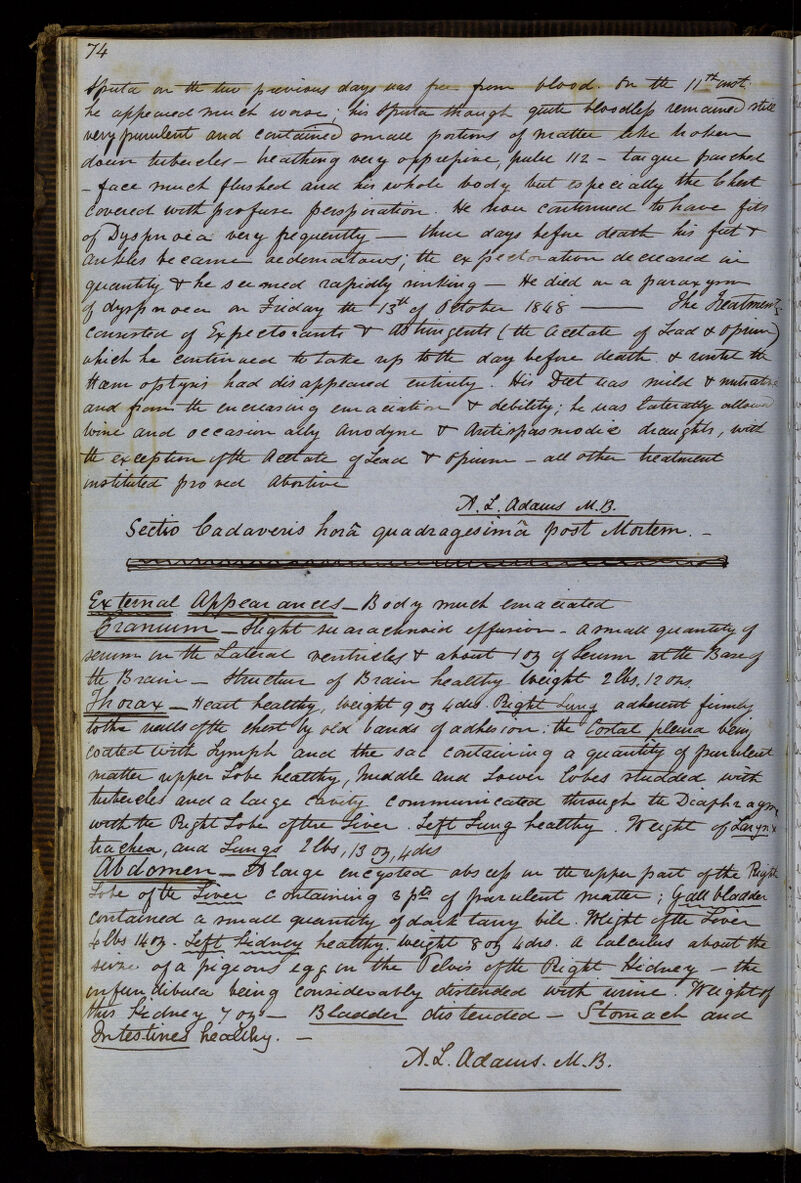 74
Sputa on the two previous days was free from blood. On the 11th inst.
he appeared much worse; his Sputa though quite bloodless remained still
very purulent and contained small portions of matter like broken
down tubercles – breathing very oppressive, pulse 112 – tongue parched
– face much flushed and his whole body but especially the Chest
covered with profuse perspiration. He now continued to have fits
of Dyspnoea very frequently — three days before death his feet &
ankles became oedematous; the expectoration decreased in
quantity & he seemed rapidly sinking – He died in a paroxysm
of dyspnoea on Friday the 13th of October 1848 — The Treatment
consisted of Expectorants & Astringents (the Acetate of Lead & opium)
which he continued to take up to the day before death & until the
Haemoptysis had disappeared entirely. His Diet was mild & nutrative
and from the encreasing emaciation & debility; he was latterally allowed
wine and occasionally Anodyne & Antispasmodic draughts, with
the exception of the Acetate of Lead & Opium – all other treatment
instituted proved abortive
A. L. Adams M.B.
Sectio Cadaveris horâ quadragesimâ post Mortem. –
External Appearances – Body much emaciated
Cranium – Slight suarachnoid effusion – a small quantity of
serum in the Lateral ventricles & about 1 oz of Serum at the Base of
the Brain – Structure of Brain healthy weight 2 lbs. 12 ozs.
Thorax – Heart healthy, weight 9 oz 4 drs. Right Lung adherent firmly
to the walls of the chest by old bands of adhesion: the Costal pleura being
coated with Lymph and the sac containing a quantity of purulent
matter upper Lobe healthy, Middle and Lower lobes studded with
tubercles and a large cavity communicated through the Diaphragm
with the Right Lobe of the Liver. Left Lung healthy. Weight of Larynx
trachea, and Lungs 2 lbs, 13 oz, 4 drs
Abdomen – A large encysted abscess in the upper part of the Right
Lobe of the Liver containing 3 pts of purulent matter; Gall bladder
contained a small quantity of dark tarry bile. Weight of the Liver
4 lbs 14 oz. Left Kidney healthy. weight 8 oz 4 drs. A Calculus about the
size of a pigeons egg in the Pelvis of the Right Kidney – the
infundibula being considerably distended with urine. Weight of
this Kidney 7 oz – Bladder distended – Stomach and
Intestines healthy. –
A. L. Adams. M.B.